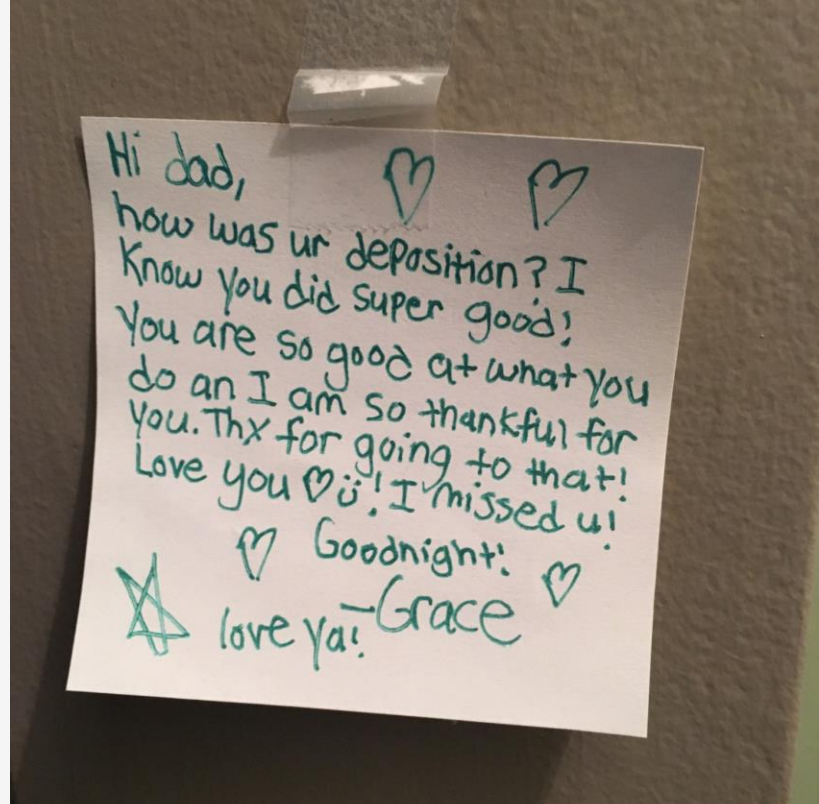 Hi dad, ♡ ♡
how was ur deposition? I
Know you did super good!
You are so good at what you
do an I am so thankful for
you. Thx for going to that!
Love you ♡ ü! I missed u!
♡ Goodnight! ♡
-Grace
☆ love ya!